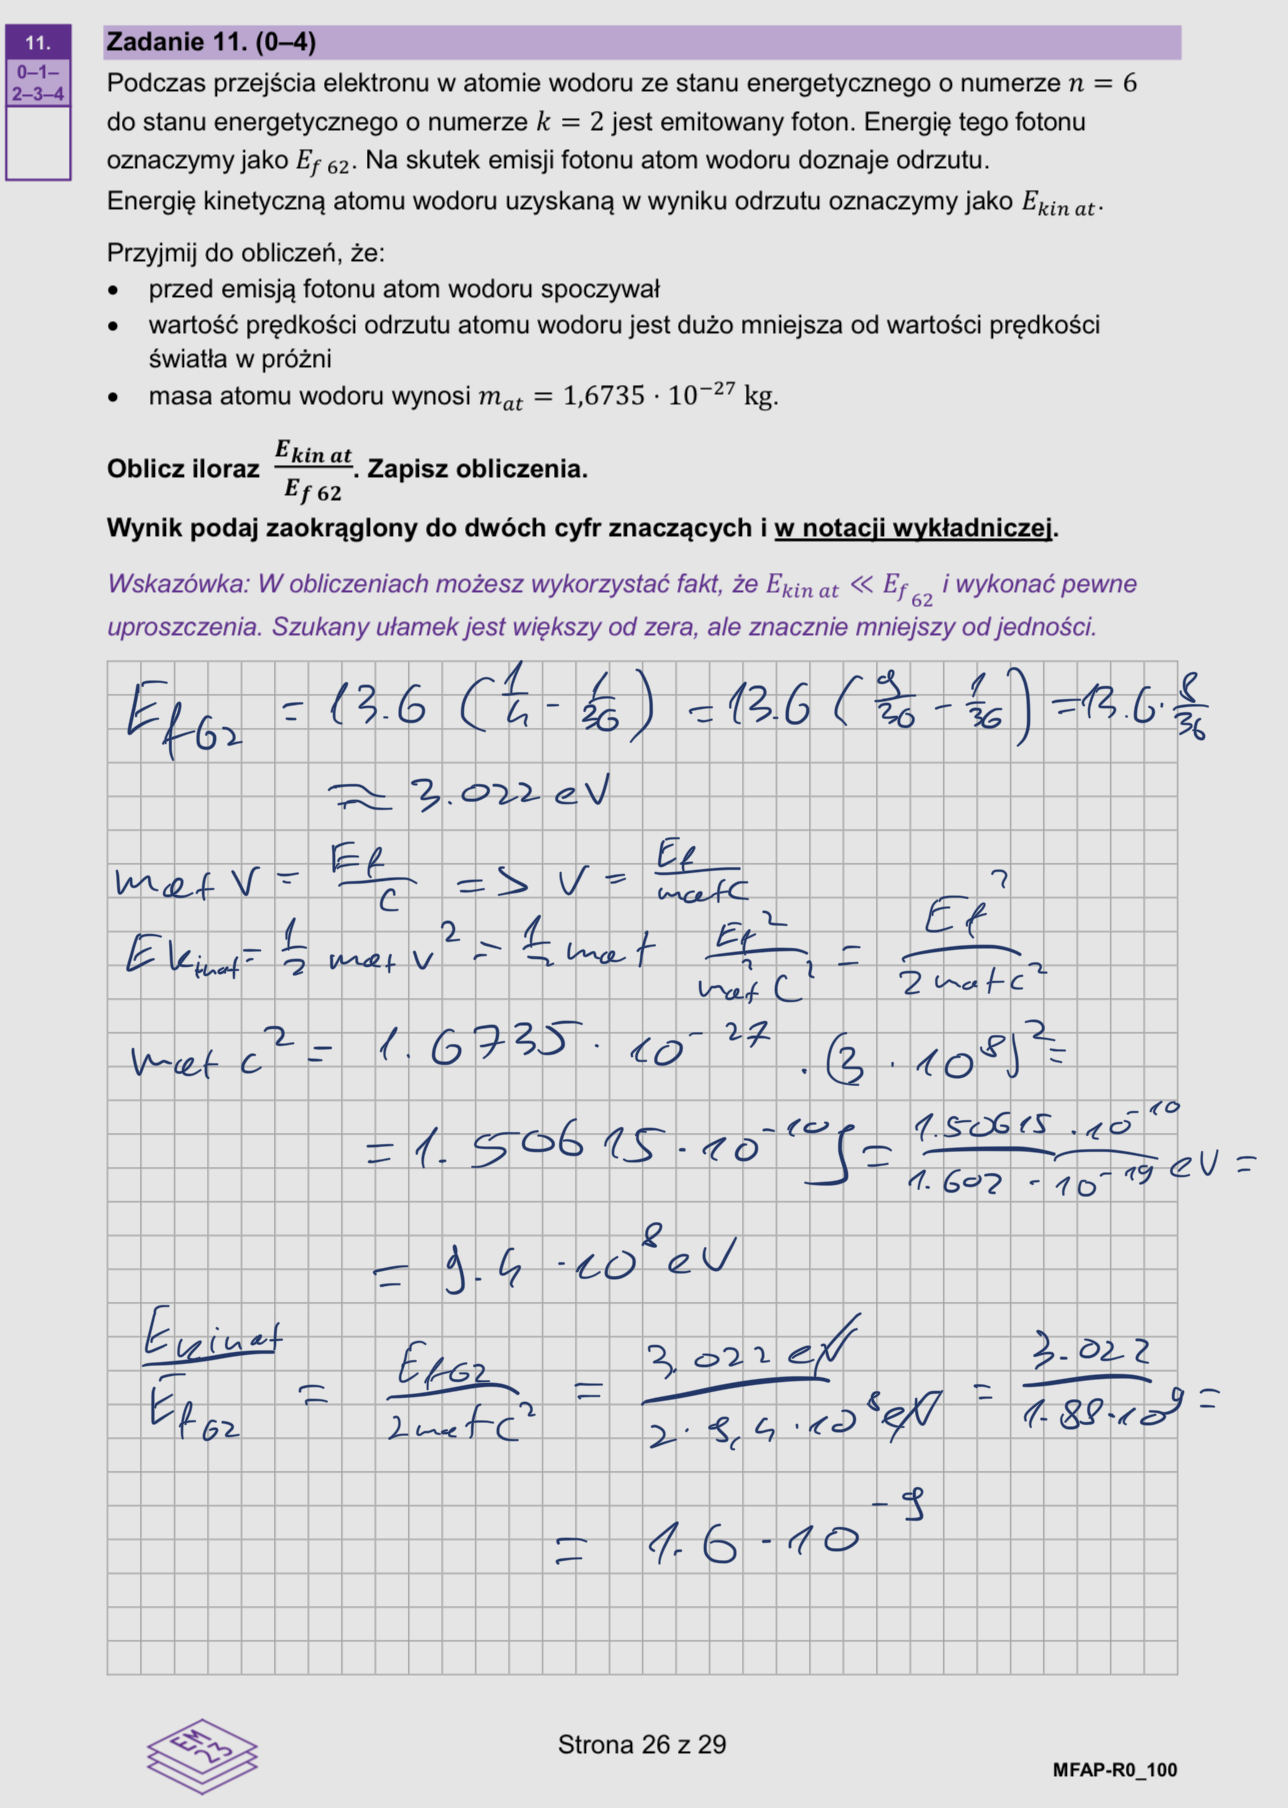 11.
0–1–
2–3–4
Zadanie 11. (0–4)
Podczas przejścia elektronu w atomie wodoru ze stanu energetycznego o numerze n = 6
do stanu energetycznego o numerze k = 2 jest emitowany foton. Energię tego fotonu
oznaczymy jako E_{f 62}. Na skutek emisji fotonu atom wodoru doznaje odrzutu.
Energię kinetyczną atomu wodoru uzyskaną w wyniku odrzutu oznaczymy jako E_{kin at}.
Przyjmij do obliczeń, że:
• przed emisją fotonu atom wodoru spoczywał
• wartość prędkości odrzutu atomu wodoru jest dużo mniejsza od wartości prędkości
światła w próżni
• masa atomu wodoru wynosi m_{at} = 1,6735 · 10^{−27} kg.
Oblicz iloraz E_{kin at}/E_{f 62}. Zapisz obliczenia.
Wynik podaj zaokrąglony do dwóch cyfr znaczących i w notacji wykładniczej.
Wskazówka: W obliczeniach możesz wykorzystać fakt, że E_{kin at} ≪ E_{f 62} i wykonać pewne
uproszczenia. Szukany ułamek jest większy od zera, ale znacznie mniejszy od jedności.
E_{f62} = 13.6 (1/4 - 1/36) = 13.6 (9/36 - 1/36) = 13.6 · 8/36
≈ 3.022 eV
mat V = Ef/c => V = Ef/matc
Ekinat = 1/2 mat v^2 = 1/2 mat Ef^2/mat^2 c^2 = Ef^2/2matc^2
mat c^2 = 1.6735 · 10^{-27} · (3 · 10^8)^2 =
= 1.50615 · 10^{-10} J = 1.50615 · 10^{-10}/1.602 · 10^{-19} eV =
= 9.4 · 10^8 eV
Ekinat/Ef62 = Ef62/2matc^2 = 3.022 eV/2 · 9,4 · 10^8 eV = 3.022/1.88 · 10^9 =
= 1.6 · 10^{-9}
EM
23
Strona 26 z 29
MFAP-R0_100